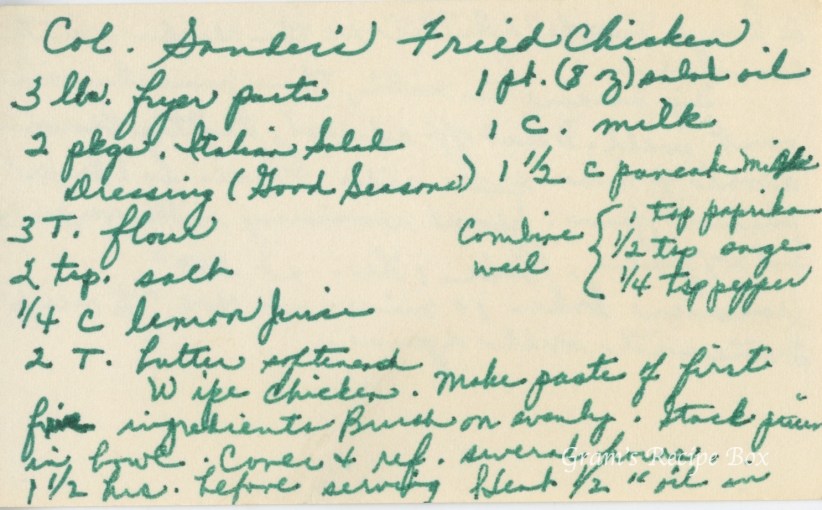 Col. Sander's Fried Chicken
3 lbs. fryer parts
2 pkgs. Italian Salad
Dressing (Good Seasons)
3 T. flour
2 tsp. salt
1/4 c lemon juice
2 T. butter softened
1 pt. (8 oz) salad oil
1 c. milk
1 1/2 c pancake mix
Combine well
1 tsp paprika
1/2 tsp sage
1/4 tsp pepper
Wipe chicken. Make paste of first
five ingredients Brush on evenly. Stack
in bowl. Cover & ref. several
1 1/2 hrs. before serving Heat 1/2" oil in
Gram's Recipe Box